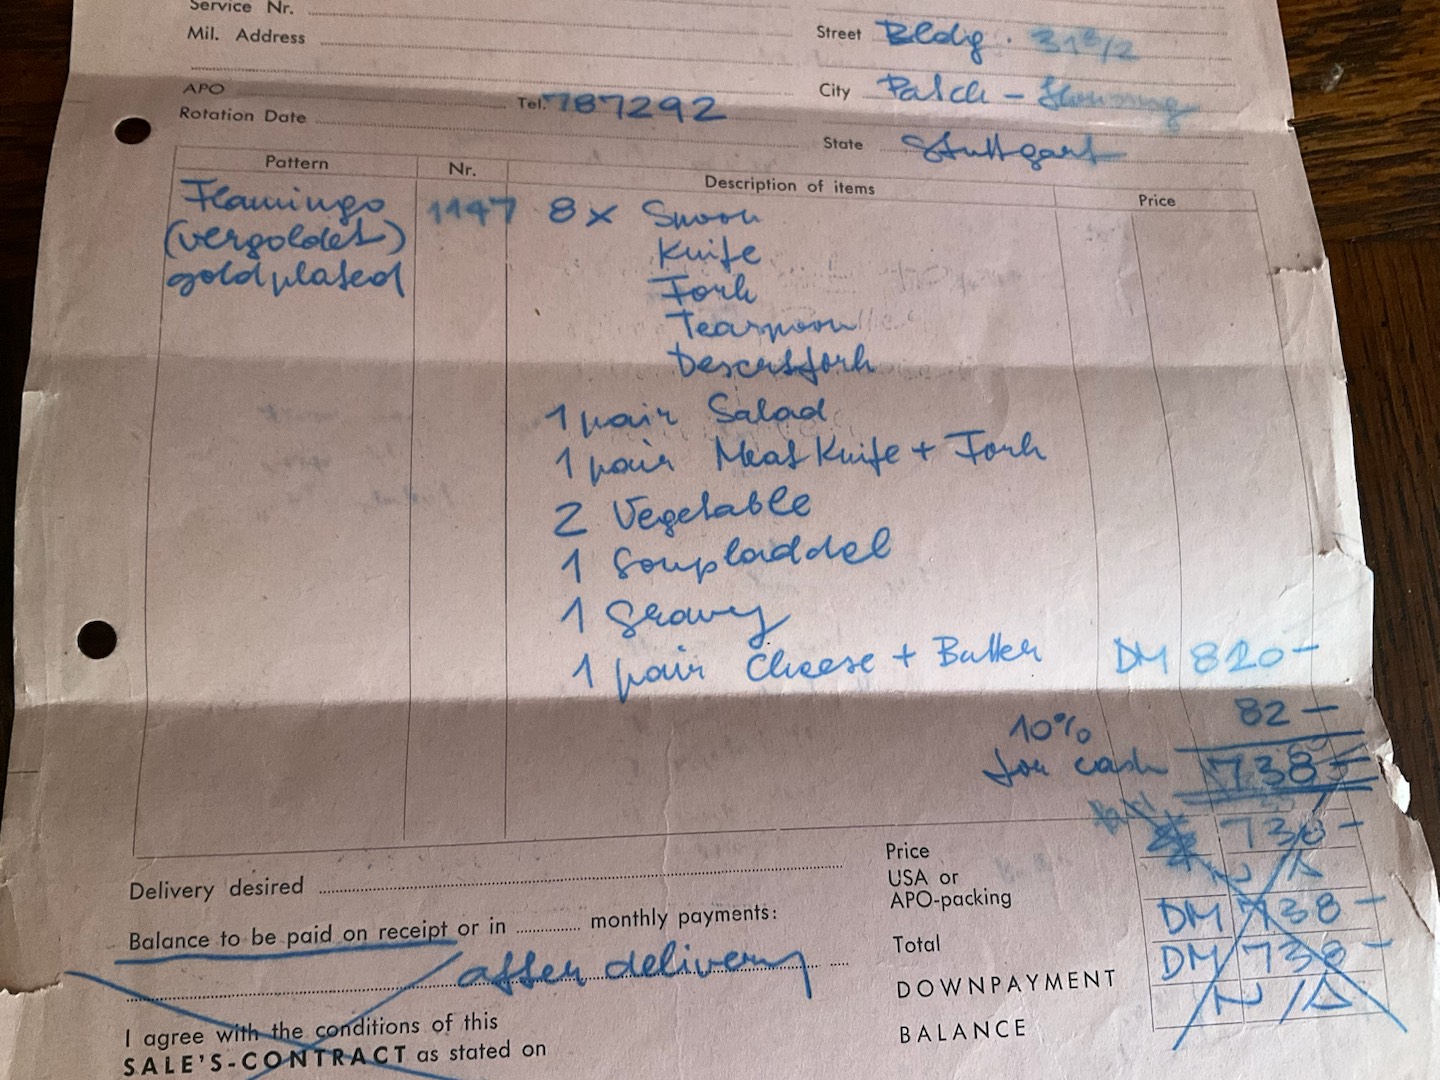 Service Nr.
Mil. Address
Street Bldg. 31
APO
Tel. 787292
City Patch -
Rotation Date
State Stuttgart
Pattern Nr. Description of items Price
Flamingo 1147 8 x Spoon
(vergoldet) Knife
goldplated Fork
Teaspoon
Desertfork
1 pair Salad
1 pair Meat Knife + Fork
2 Vegetable
1 Soupladdel
1 Gravy
1 pair Cheese + Butter DM 820-
10% 82 -
for cash 738-
Price 738-
Delivery desired
USA or
APO-packing
Balance to be paid on receipt or in monthly payments:
Total DM 738 -
after delivery
DOWNPAYMENT DM 738 -
I agree with the conditions of this
BALANCE
SALE'S-CONTRACT as stated on